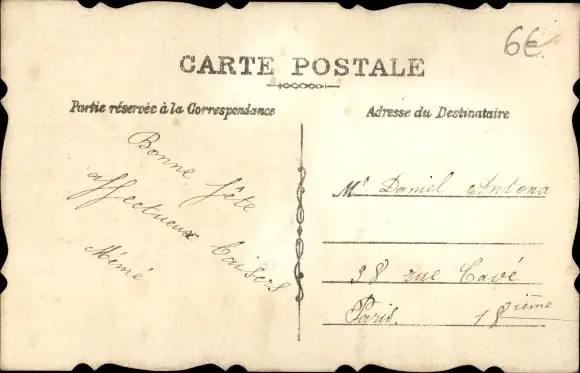 6€
CARTE POSTALE
Partie réservée à la Correspondance
Adresse du Destinataire
Bonne fête
affectueux baisers
Mémé
Mr Daniel Antona
38 rue Cavé
Paris. 18ième